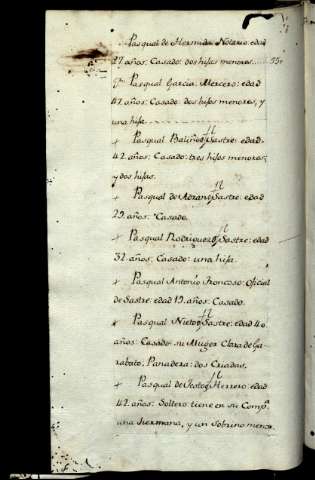 Pasqual de Hermida: Notario: edad
27. años: Casado: dos hijos menores
Pasqual Garcia: Mercero: edad
42. años: Casado: dos hijos menores, y
una hija
+ Pasqual Baliño, Sastre: edad
42. años: Casado: tres hijos menores,
y dos hijas.
+ Pasqual de Sastre: edad
29. años: Casado.
+ Pasqual Rodriguez, Sastre: edad
32. años: Casado: una hija.
+ Pasqual Antonio Troncoso: Oficial
de Sastre: edad 19. años: Casado.
+ Pasqual Nieto, Sastre: edad 40.
años: Casado: su Muger Clara de Ga-
rabato, Panadera: dos Criadas.
+ Pasqual de Herrero: edad
42. años: Soltero: tiene en su Comp.ª
una hermana, y un sobrino menor.